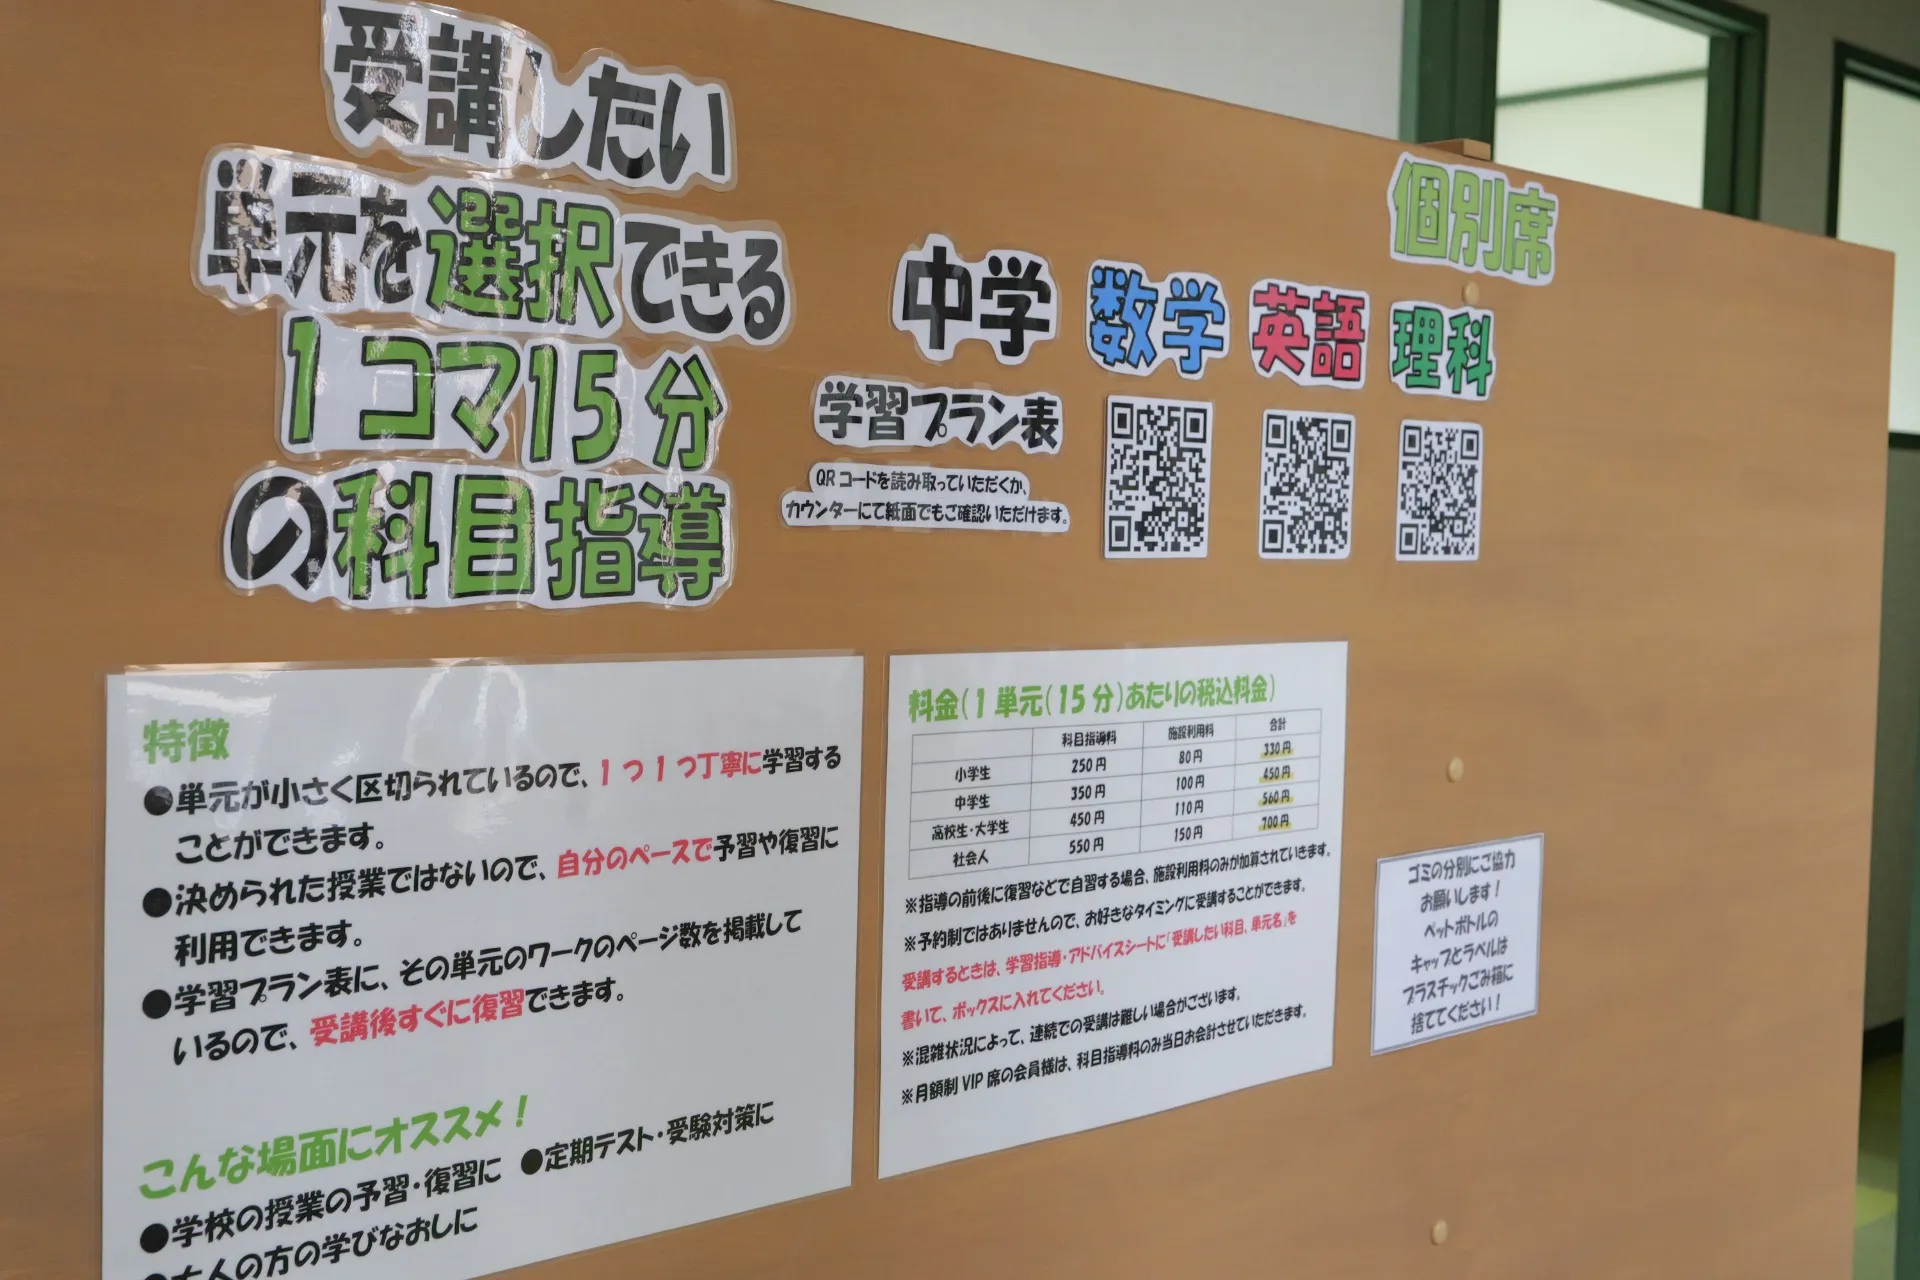 受講したい
単元を選択できる
1コマ15分
の科目指導
個別席
中学 数学 英語 理科
学習プラン表
QRコードを読み取っていただくか、
カウンターにて紙面でもご確認いただけます。
特徴
●単元が小さく区切られているので、1つ1つ丁寧に学習する
ことができます。
●決められた授業ではないので、自分のペースで予習や復習に
利用できます。
●学習プラン表に、その単元のワークのページ数を掲載して
いるので、受講後すぐに復習できます。
こんな場面にオススメ!
●学校の授業の予習・復習に ●定期テスト・受験対策に
●大人の方の学びなおしに
料金(1単元(15分)あたりの税込料金)
科目指導料 施設利用料 合計
小学生 250円 80円 330円
中学生 350円 100円 450円
高校生・大学生 450円 110円 560円
社会人 550円 150円 700円
※指導の前後に復習などで自習する場合、施設利用料のみが加算されていきます。
※予約制ではありませんので、お好きなタイミングに受講することができます。
受講するときは、学習指導・アドバイスシートに「受講したい科目、単元名」を
書いて、ボックスに入れてください。
※混雑状況によって、連続での受講は難しい場合がございます。
※月額制VIP席の会員様は、科目指導料のみ当日お会計させていただきます。
ゴミの分別にご協力
お願いします!
ペットボトルの
キャップとラベルは
プラスチックごみ箱に
捨ててください!